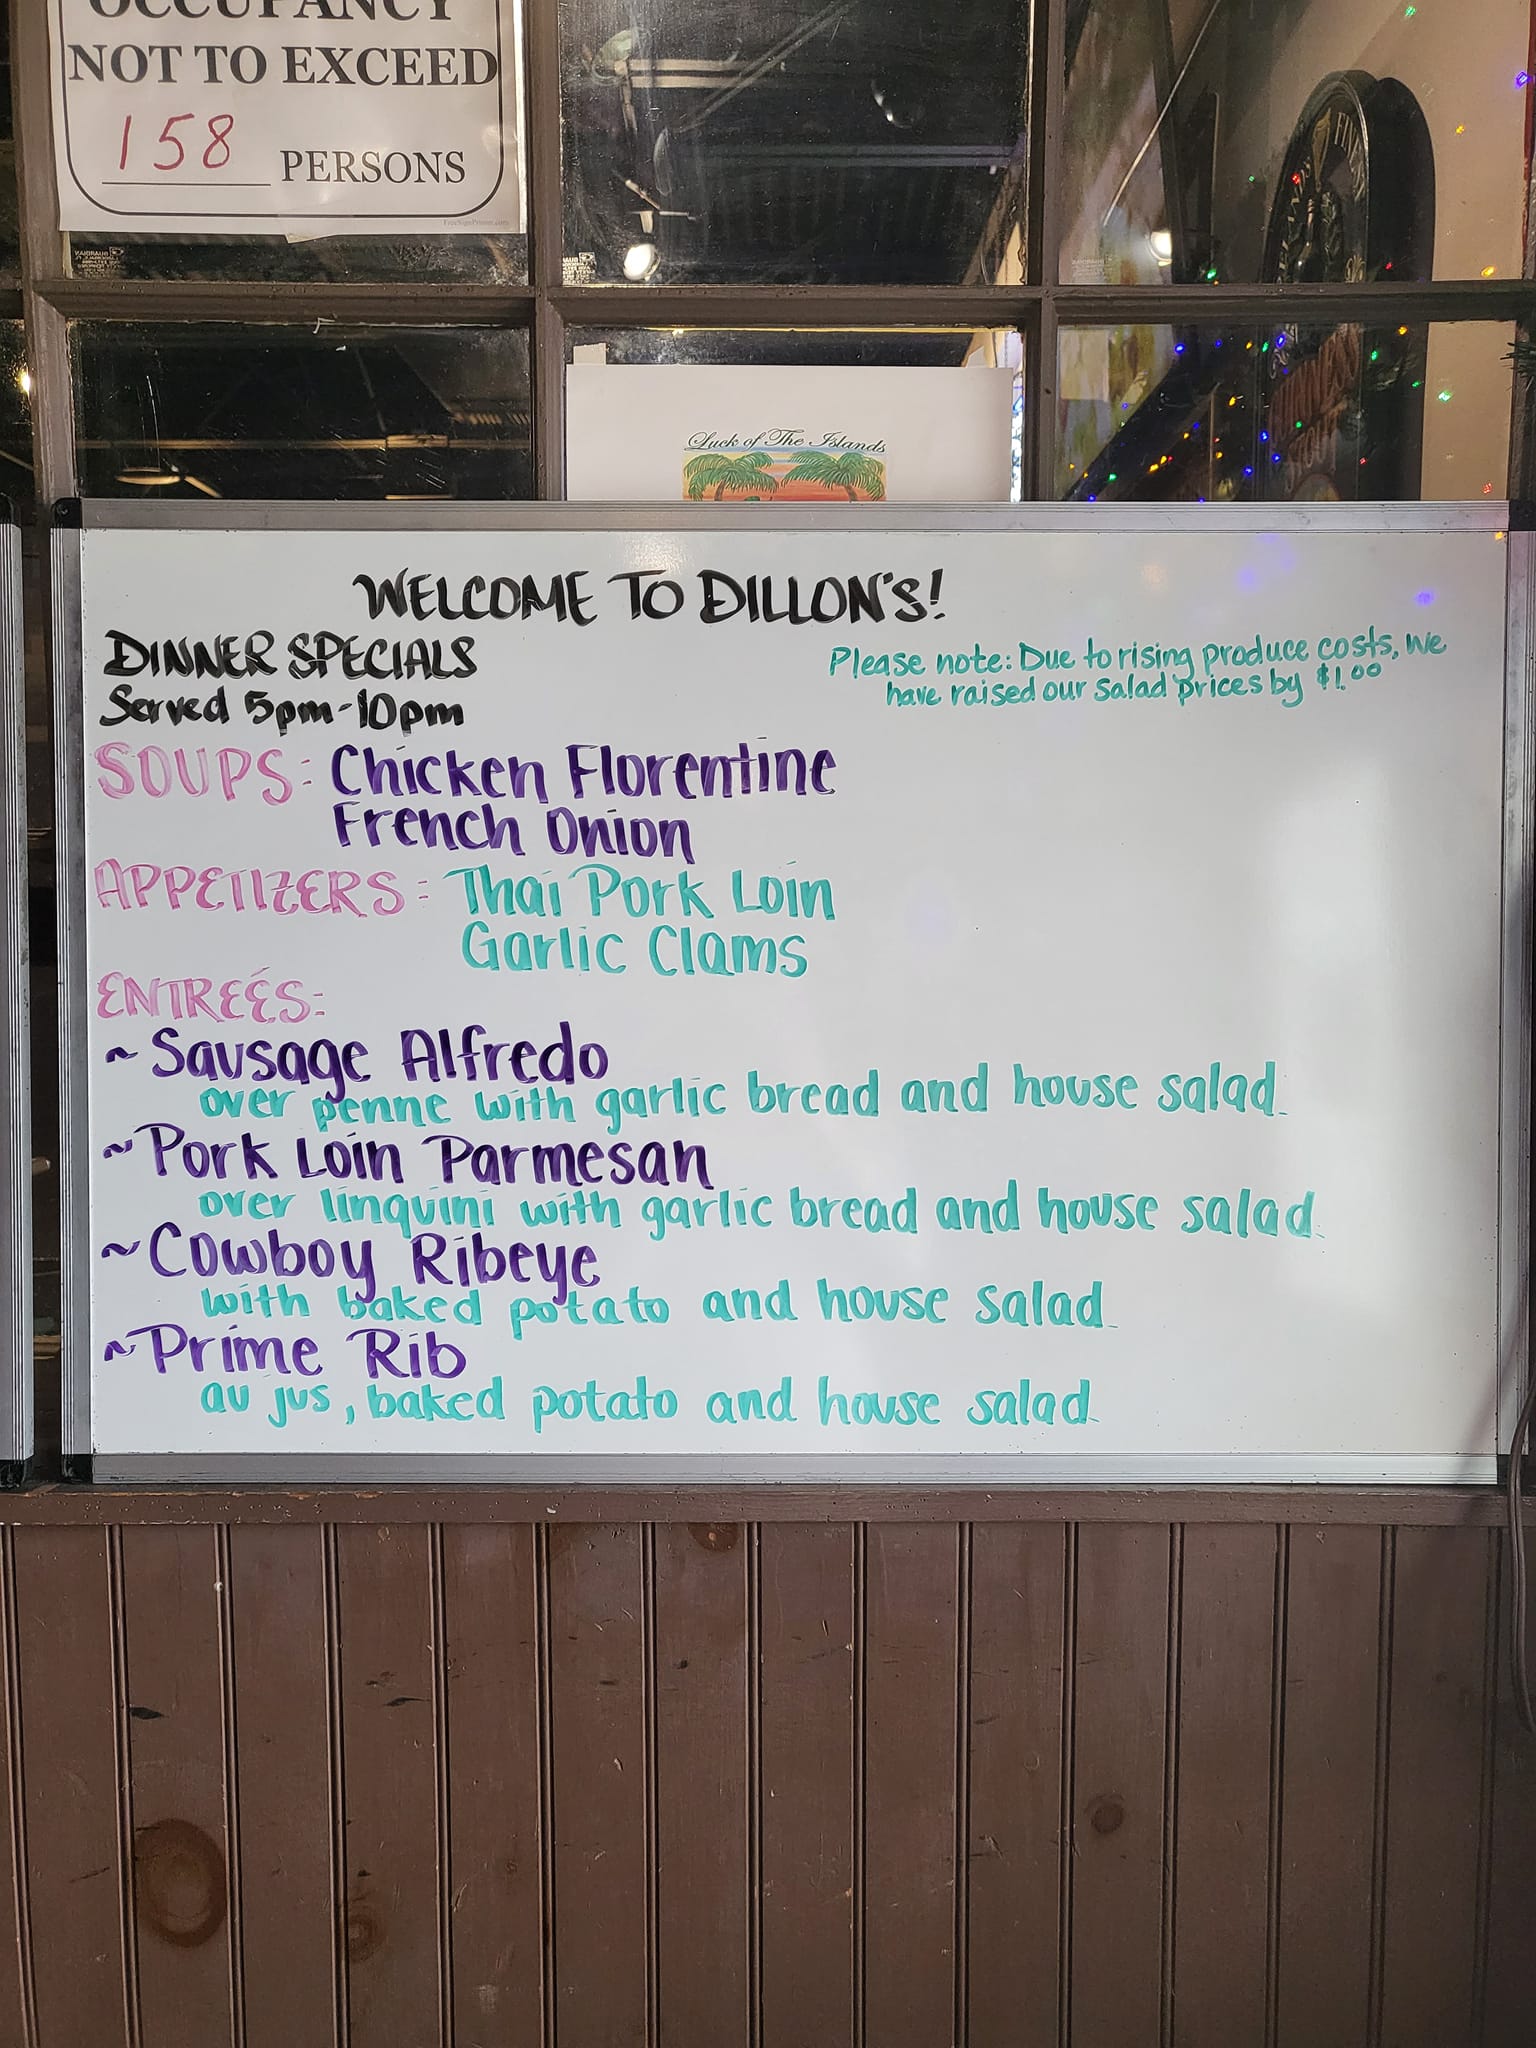 OCCUPANCY
NOT TO EXCEED
158 PERSONS
FreeSignPrinter.com
Luck of The Islands
WELCOME TO DILLON'S!
DINNER SPECIALS
Served 5pm-10pm
Please note: Due to rising produce costs, we
have raised our salad prices by $1.00
SOUPS: Chicken Florentine
French Onion
APPETIZERS: Thai Pork Loin
Garlic Clams
ENTREÉS:
~Sausage Alfredo
over penne with garlic bread and house salad.
~Pork Loin Parmesan
over linquini with garlic bread and house salad.
~Cowboy Ribeye
with baked potato and house salad.
~Prime Rib
au jus, baked potato and house salad.